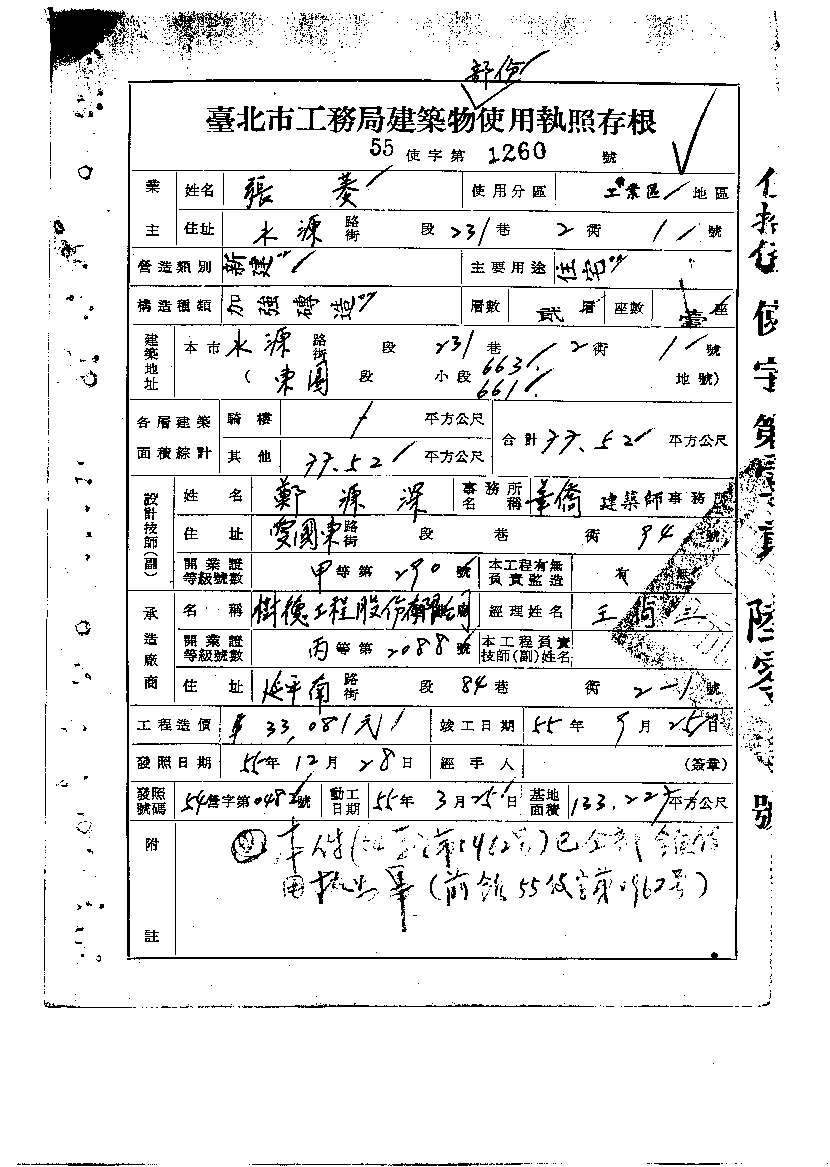 部份
臺北市工務局建築物使用執照存根
55 使字第 1260 號
業主 姓名 張菱 使用分區 工業區 地區
住址 水源 路街 段 231 巷 2 衖 1 號
營造類別 新建 主要用途 住宅
構造種類 加強磚造 層數 貳層 座數 壹座
建築地址 本市 水源 路街 段 231 巷 2 衖 1 號
( 東園 段 小段 663 661 地號)
各層建築面積綜計 騎樓 / 平方公尺 合計 77.52 平方公尺
其他 77.52 平方公尺
設計技師(副) 姓名 鄭源深 事務所名稱 華僑 建築師事務所
住址 愛國東 路街 段 巷 衖 94 號
開業證等級號數 甲等第 290 號 本工程有無負責監造 有 無
承造廠商 名稱 樹德工程股份有限公司 經理姓名 王
開業證等級號數 丙等第 2088 號 本工程負責技師(副)姓名
住址 延平南 路街 段 84 巷 衖 2-1 號
工程造價 $33,081元 竣工日期 55年 9月 25日
發照日期 55年 12月 28日 經手人 (簽章)
發照號碼 54營字第0482號 動工日期 55年 3月 25日 基地面積 133.22 平方公尺
附註 本件(54 第1462號)已全部
用執照畢(前領55使字第0962號)
使字第 陸零 號